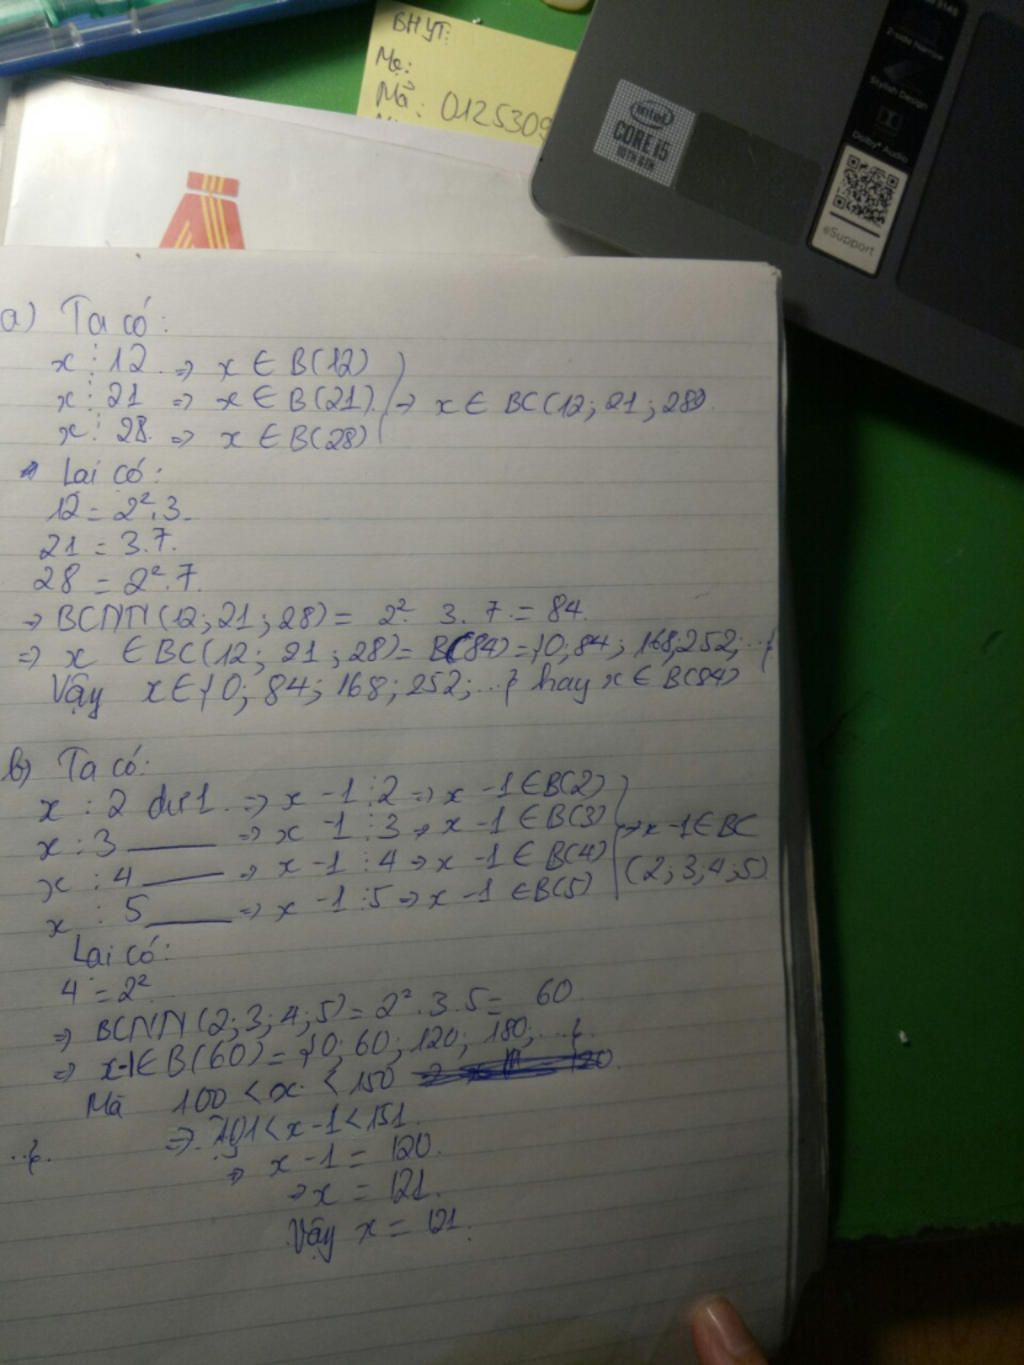 BHYT:
Mẹ:
Mã: 0125309
intel
CORE i5
10TH GEN
Stylish Design
Dolby Audio
eSupport
a) Ta có:
x ⋮ 12 ⇒ x ∈ B(12)
x ⋮ 21 ⇒ x ∈ B(21) ⇒ x ∈ BC(12; 21; 28)
x ⋮ 28 ⇒ x ∈ B(28)
Lại có:
12 = 2².3
21 = 3.7.
28 = 2².7.
⇒ BCNN(12; 21; 28) = 2². 3. 7. = 84.
⇒ x ∈ BC(12; 21; 28) = B(84) = {0; 84; 168; 252; ...}
Vậy x ∈ {0; 84; 168; 252; ...} hay x ∈ B(84)
b) Ta có:
x : 2 dư 1 ⇒ x - 1 ⋮ 2 ⇒ x - 1 ∈ B(2)
x : 3 ____ ⇒ x - 1 ⋮ 3 ⇒ x - 1 ∈ B(3) ⇒ x - 1 ∈ BC
x : 4 ____ ⇒ x - 1 ⋮ 4 ⇒ x - 1 ∈ B(4) (2; 3; 4; 5)
x : 5 ____ ⇒ x - 1 ⋮ 5 ⇒ x - 1 ∈ B(5)
Lại có:
4 = 2²
⇒ BCNN(2; 3; 4; 5) = 2².3.5 = 60
⇒ x-1 ∈ B(60) = {0; 60; 120; 180; ...}.
Mà 100 < x < 150
⇒ 101 < x - 1 < 151.
...}.
⇒ x - 1 = 120.
⇒ x = 121.
Vậy x = 121.